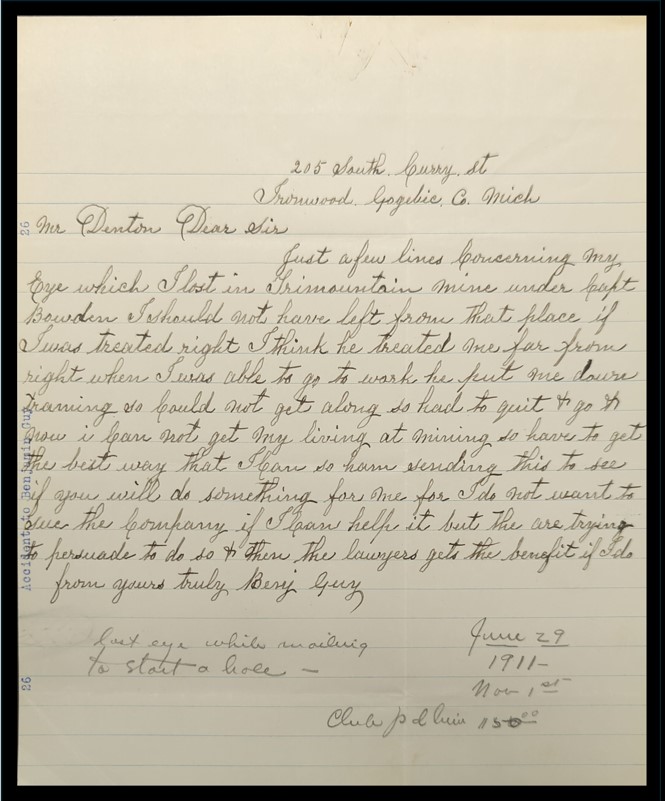 205 South. Curry. st
Ironwood. Gogebic. Co. Mich
Mr Denton Dear Sir
Just a few lines Concerning my
Eye which I lost in Trimountain mine under Capt
Bowden I should not have left from that place if
I was treated right I think he treated me far from
right when I was able to go to work he put me down
traming so Could not get along so had to quit & go &
now i Can not get my living at mining so have to get
the best way that I Can so ham sending this to see
if you will do something for me for I do not want to
sue the Company if I Can help it but the are trying
to persuade to do so & then the lawyers gets the benefit if I do
from yours truly Benj Guy
Lost eye while mailing
to start a hole —
June 29
1911-
Nov 1st
Club pd him 1150.00
26
Accident to Benjamin Guy
26